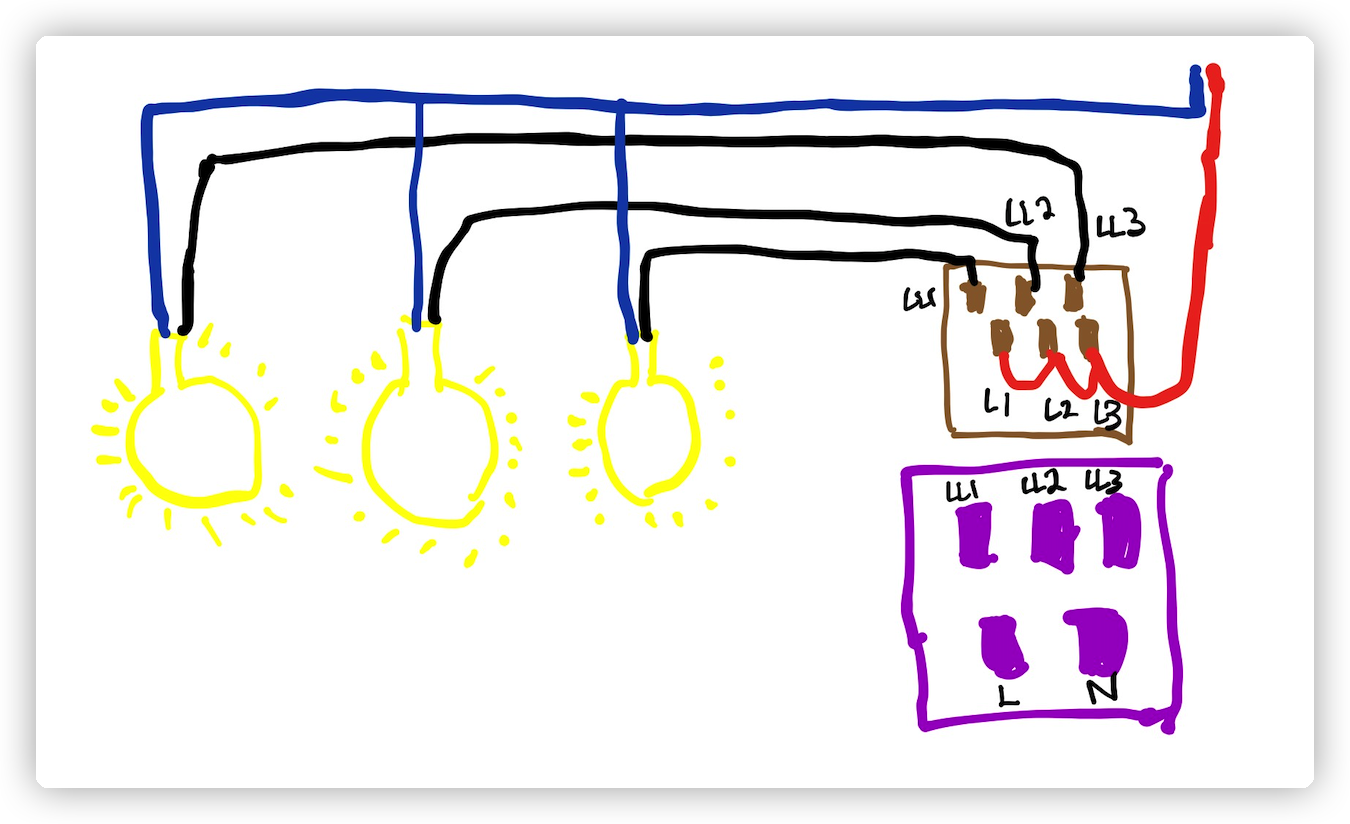 LL2
LL3
LL1
L1
L2
L3
LL1
LL2
LL3
L
N